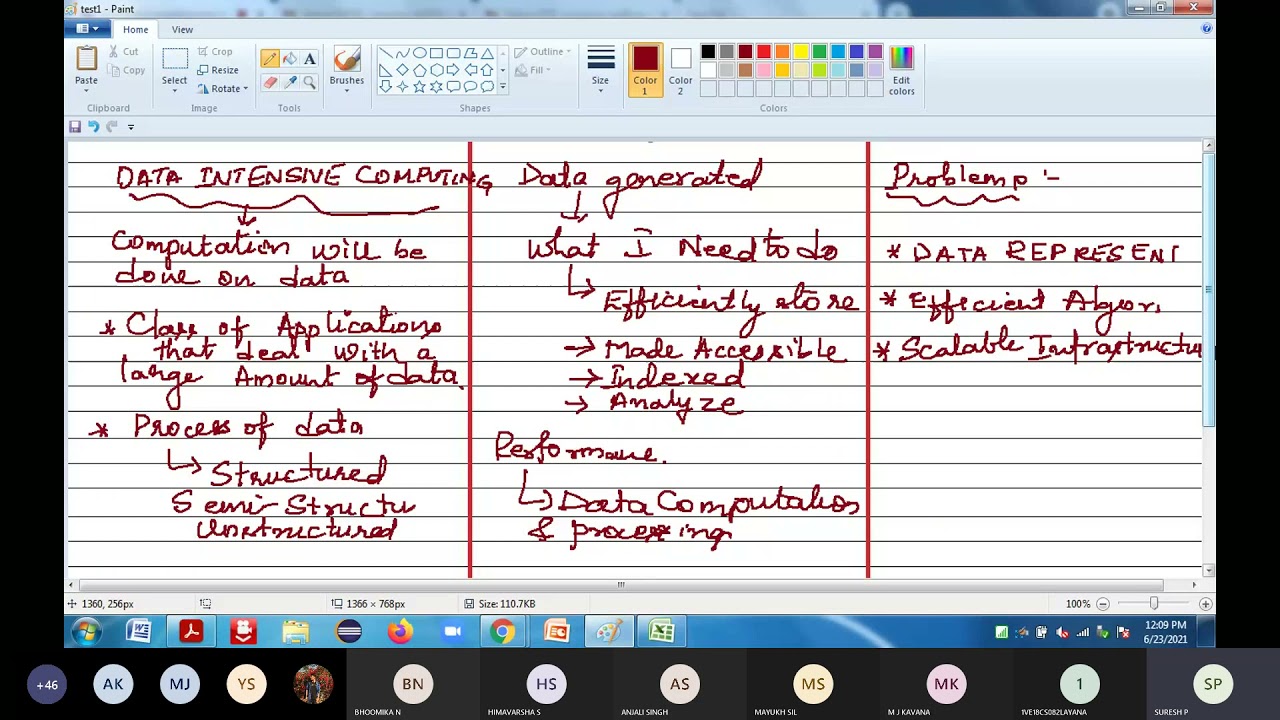 test1 - Paint
Home
View
Paste
Cut
Copy
Clipboard
Select
Crop
Resize
Rotate
Image
Tools
Brushes
Shapes
Outline
Fill
Size
Color
1
Color
2
Edit
colors
Colors
DATA INTENSIVE COMPUTING
Computation will be
done on data
* Class of Applications
that deal with a
large Amount of data.
* Process of data
Structured
Semi-Structu
Unstructured
Data generated
What I Need to do
Efficiently store
→ Made Accessible
→ Indexed
→ Analyze
Performance.
Data Computation
& processing
Problemp :-
* DATA REPRESENT
* Efficient Algor.
* Scalable Infrastructu
1360, 256px
1366 × 768px
Size: 110.7KB
100%
12:09 PM
6/23/2021
+46
AK
MJ
YS
BN
BHOOMIKA N
HS
HIMAVARSHA S
AS
ANJALI SINGH
MS
MAYUKH SIL
MK
M J KAVANA
1
1VE18CS082LAYANA
SP
SURESH P